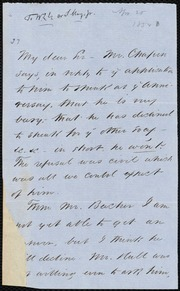 My dear Sir - Mr. Chapin
says, in reply to yr application
to him to speak at yr Anni-
versary. That he is very
busy; that he has declined
to speak for yr other Socy
&c. &c. in short he won't.
The refusal was civil which
was all we could expect
of him.
From Mr. Beecher I am
not yet able to get an
answer, but I think he
will decline. Mr. Hall was
willing even to ask him,